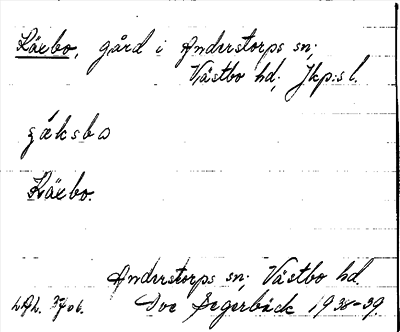 Käxbo, gård i Anderstorps sn;
Västbo hd; Jkp:s l.
Käxbo.
Anderstorps sn; Västbo hd.
Segerbäck 1938-39.